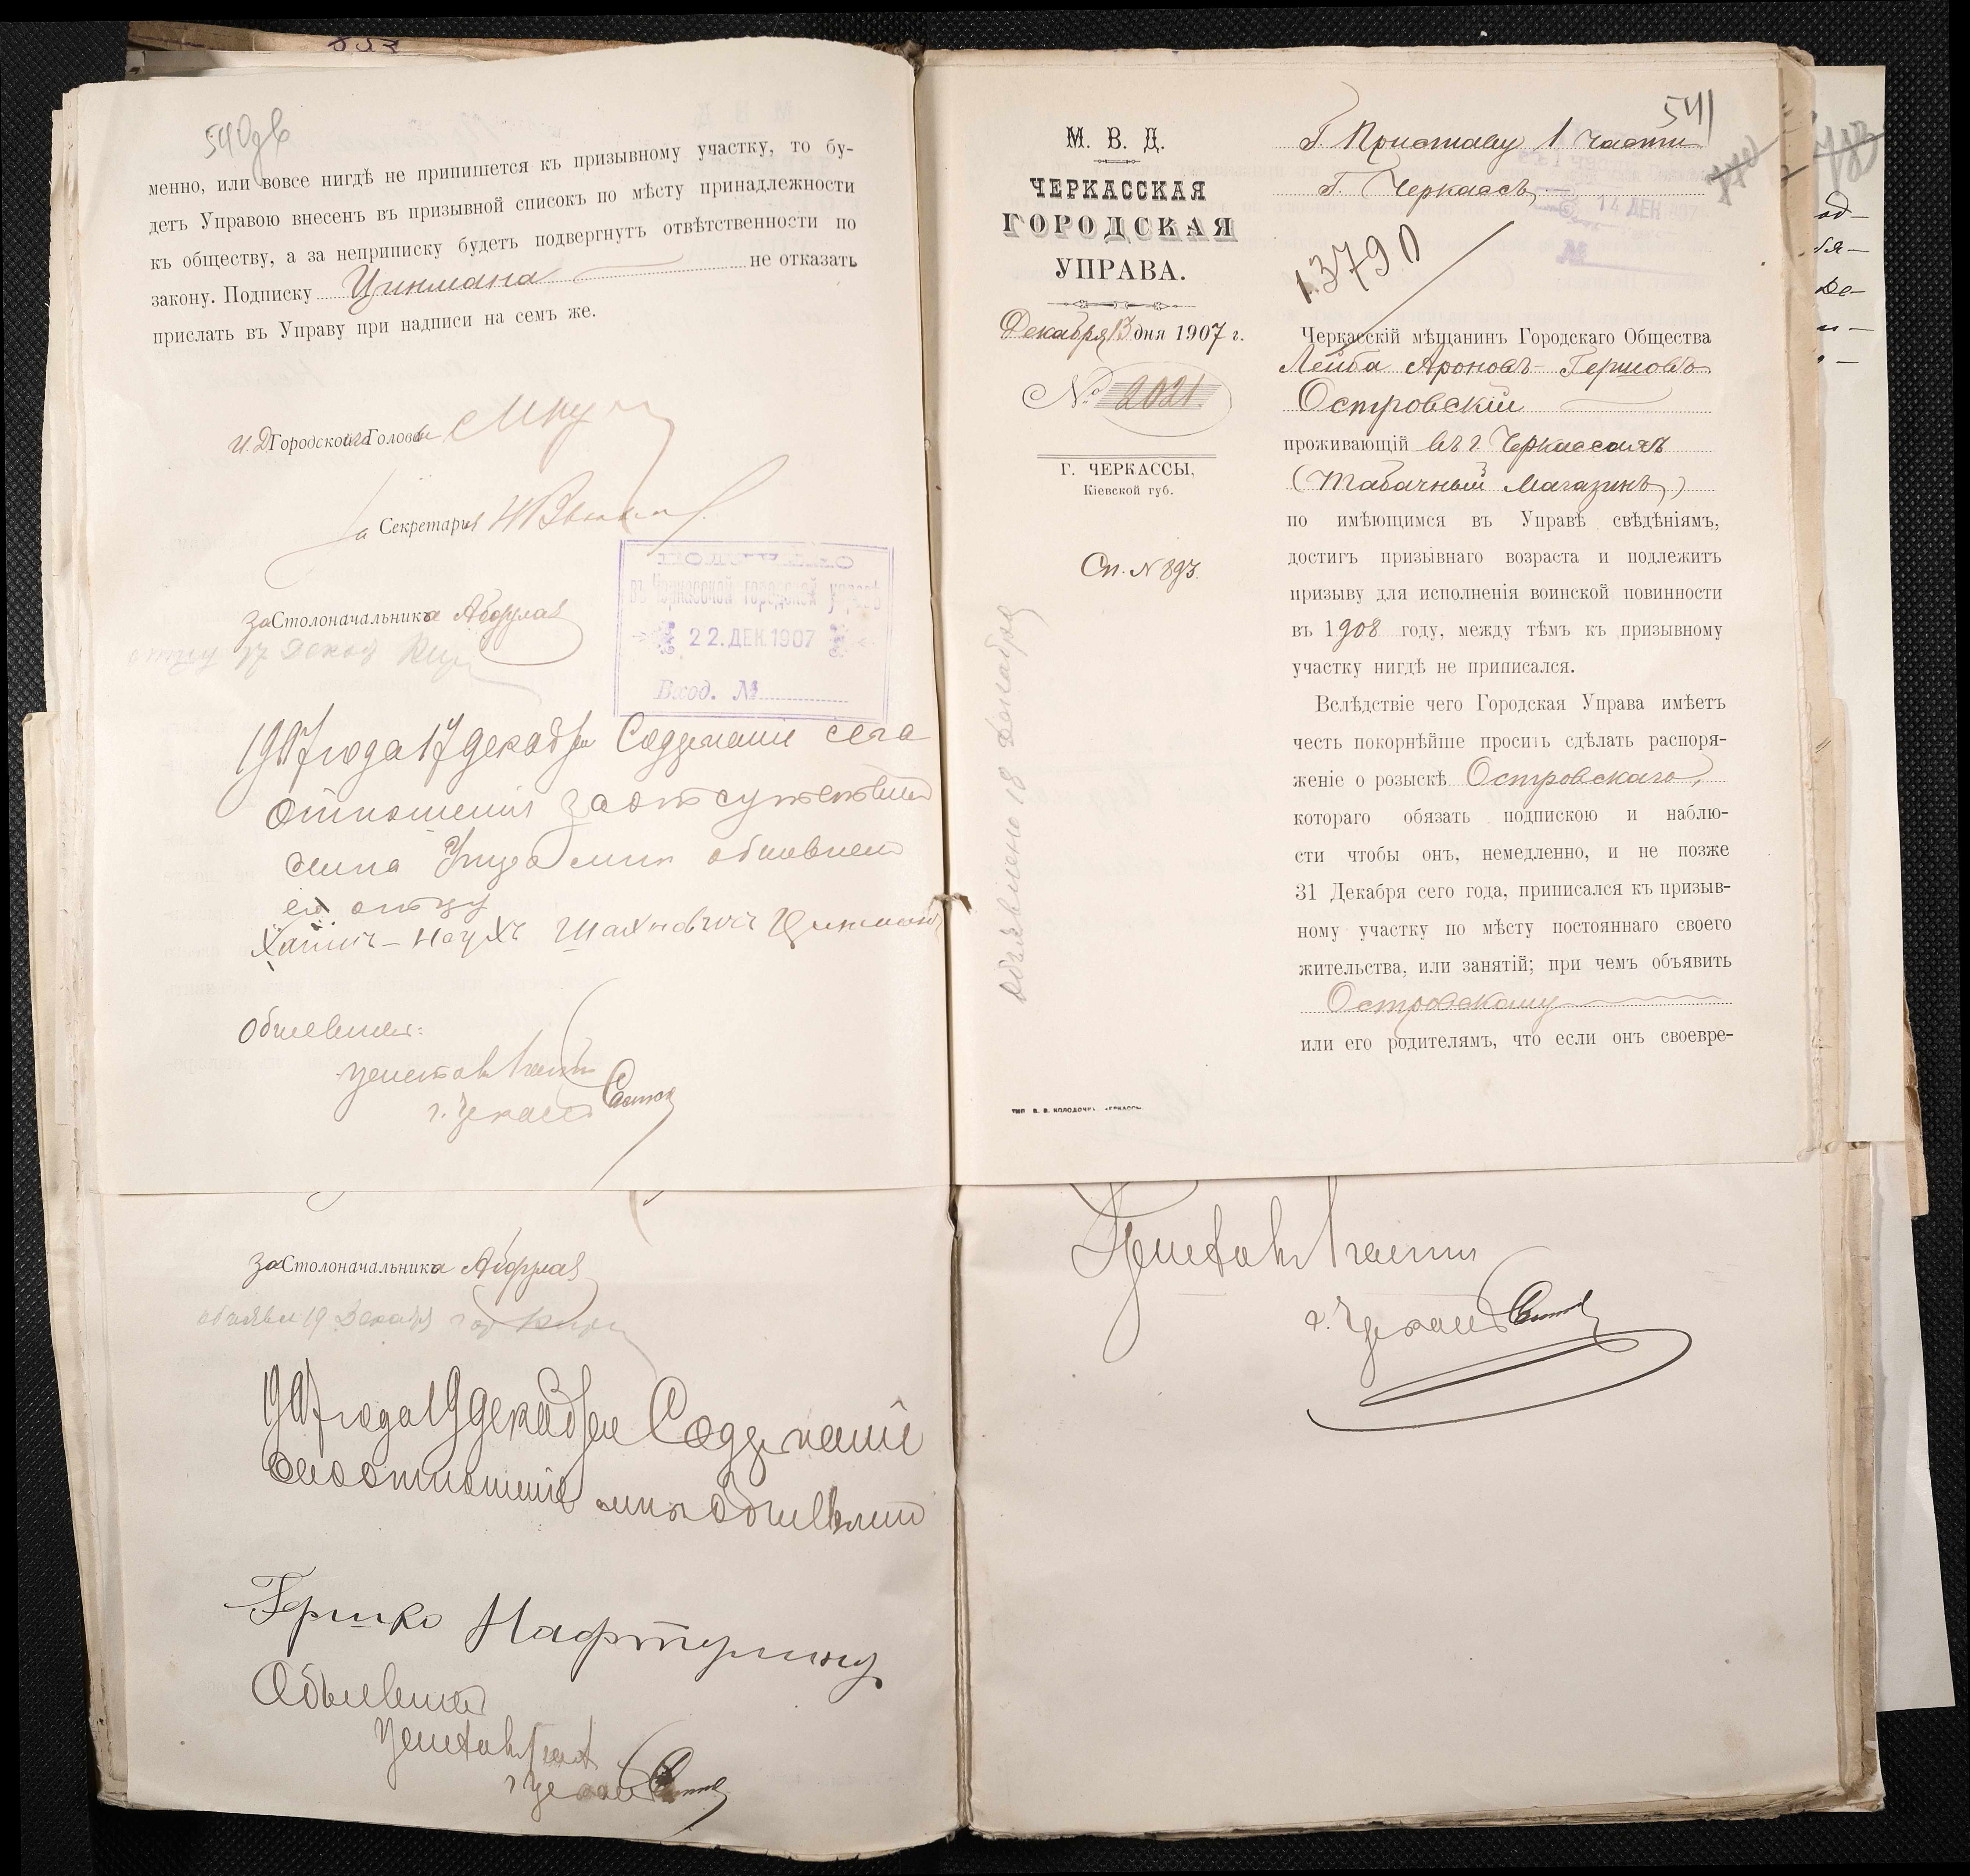 540 зв
менно, или вовсе нигдѣ не припишется къ призывному участку, то бу-
детъ Управою внесенъ въ призывной списокъ по мѣсту принадлежности
къ обществу, а за неприписку будетъ подвергнутъ отвѣтственности по
закону. Подписку Цинмана не отказать
прислать въ Управу при надписи на семъ же.
И.Д. Городского Головы
За Секретаря
За Столоначальника
въ Черкасской городской управѣ
22. ДЕК. 1907
Вход. №
1907 года 17 декабря Содержаніе сего
отношенія за отсутствіем
сына объявлено
его отцу
Хаимъ-Ноухъ Шахновичъ Цинманъ
Объявилъ:
г. Черкассъ
За Столоначальника
19 Декабря
1907 года 19 декабря Содержаніе
сего отношенія мнѣ объявлено
Гершко Нафтулинъ
Объявилъ
541
М. В. Д.
ЧЕРКАССКАЯ
ГОРОДСКАЯ
УПРАВА.
Декабря 13 дня 1907 г.
№ 2021
Г. ЧЕРКАССЫ,
Кіевской губ.
Сп. № 893.
Объявлено 18 Декабря
Г. Приставу 1 части
г. Черкассъ
14 ДЕК 1907
№
13790
Черкасскій мѣщанинъ Городскаго Общества
Лейба Ароновъ-Гершовъ
Островскій
проживающій въ г. Черкассахъ
(Табачный магазинъ)
по имѣющимся въ Управѣ свѣдѣніямъ,
достигъ призывнаго возраста и подлежитъ
призыву для исполненія воинской повинности
въ 1908 году, между тѣмъ къ призывному
участку нигдѣ не приписался.
Вслѣдствіе чего Городская Управа имѣетъ
честь покорнѣйше просить сдѣлать распоря-
женіе о розыскѣ Островскаго,
котораго обязать подпискою и наблю-
сти чтобы онъ, немедленно, и не позже
31 Декабря сего года, приписался къ призыв-
ному участку по мѣсту постояннаго своего
жительства, или занятій; при чемъ объявить
Островскому
или его родителямъ, что если онъ своевре-
части
г. Черкассъ